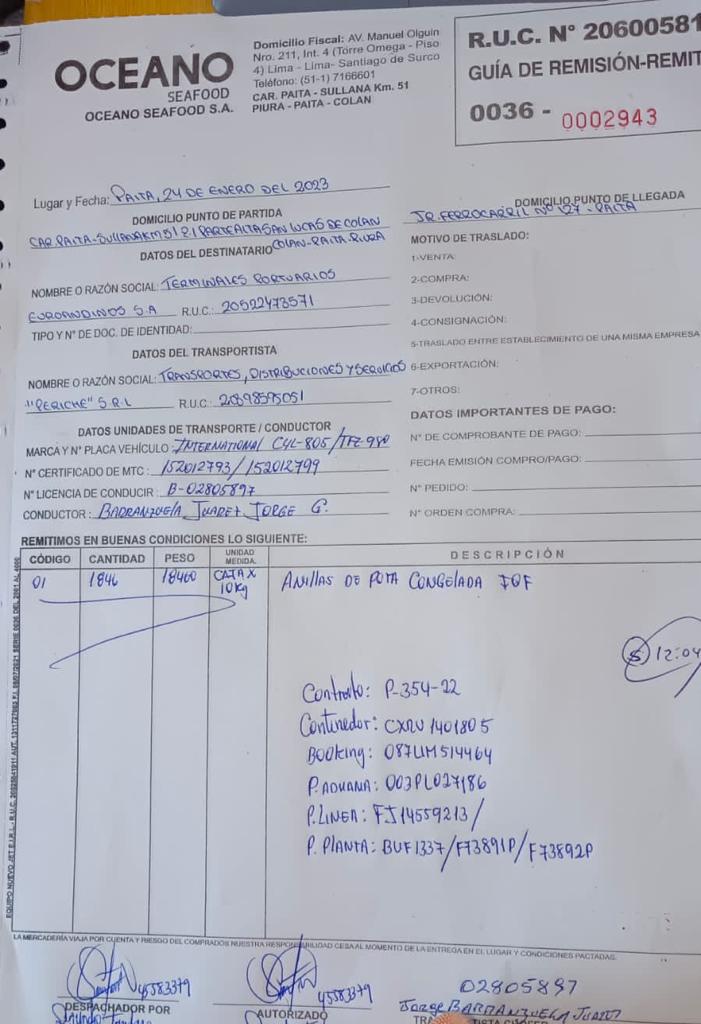 OCEANO
SEAFOOD
OCEANO SEAFOOD S.A.
Domicilio Fiscal: AV. Manuel Olguin
Nro. 211, Int. 4 (Torre Omega - Piso
4) Lima - Lima- Santiago de Surco
Teléfono: (51-1) 7166601
CAR. PAITA - SULLANA Km. 51
PIURA - PAITA - COLAN
R.U.C. N° 20600581
GUÍA DE REMISIÓN-REMIT
0036 - 0002943
Lugar y Fecha: PAITA, 24 DE ENERO DEL 2023
DOMICILIO PUNTO DE PARTIDA
CAR PAITA-SULLANA KM 51 P1 PARTE ALTA SAN LUCAS DE COLAN
COLAN-PAITA-PIURA
DOMICILIO PUNTO DE LLEGADA
JR. FERROCARRIL Nº 127 - PAITA
DATOS DEL DESTINATARIO
NOMBRE O RAZÓN SOCIAL: TERMINALES PORTUARIOS
EUROANDINOS S.A R.U.C: 20522473571
TIPO Y N° DE DOC. DE IDENTIDAD:
DATOS DEL TRANSPORTISTA
NOMBRE O RAZÓN SOCIAL: TRANSPORTES, DISTRIBUCIONES Y SERVICIOS
"PERICHE" S.R.L R.U.C:
DATOS UNIDADES DE TRANSPORTE / CONDUCTOR
MARCA Y N° PLACA VEHÍCULO: INTERNATIONAL CYL-805/TFZ-980
N° CERTIFICADO DE MTC: 152012793/152012799
N° LICENCIA DE CONDUCIR: B-02805897
CONDUCTOR: BARRANZUELA JUAREZ JORGE G.
MOTIVO DE TRASLADO:
1-VENTA:
2-COMPRA:
3-DEVOLUCIÓN:
4-CONSIGNACIÓN:
5-TRASLADO ENTRE ESTABLECIMIENTO DE UNA MISMA EMPRESA
6-EXPORTACIÓN:
7-OTROS:
DATOS IMPORTANTES DE PAGO:
N° DE COMPROBANTE DE PAGO:
FECHA EMISIÓN COMPRO/PAGO:
N° PEDIDO:
N° ORDEN COMPRA:
REMITIMOS EN BUENAS CONDICIONES LO SIGUIENTE:
CÓDIGO CANTIDAD PESO UNIDAD MEDIDA. DESCRIPCIÓN
01 1846 18460 CAJA X 10Kg ANILLAS DE POTA CONGELADA IQF
12:04
Contrato: P-354-22
Contenedor: CXRU 1401805
Booking: 087LIM514464
P.ADUANA: 003PL027186
P.LINEA: FJ14559213/
P. PLANTA: BUF1337/F73891P/F73892P
LA MERCADERÍA VIAJA POR CUENTA Y RIESGO DEL COMPRADOS NUESTRA RESPONSABILIDAD CESA AL MOMENTO DE LA ENTREGA EN EL LUGAR Y CONDICIONES PACTADAS.
45583379
DESPACHADOR POR
45583379
AUTORIZADO
02805897
Jorge BARRANZUELA JUAREZ